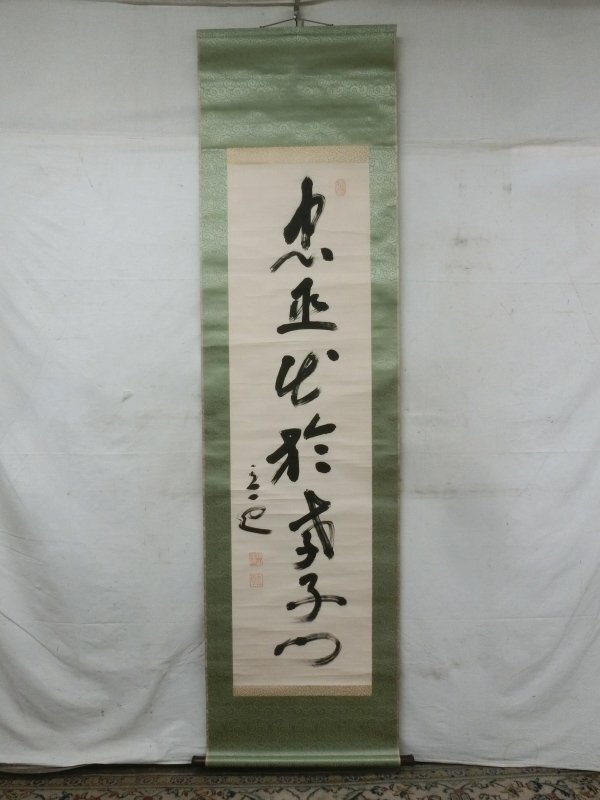 忠臣出於孝子門